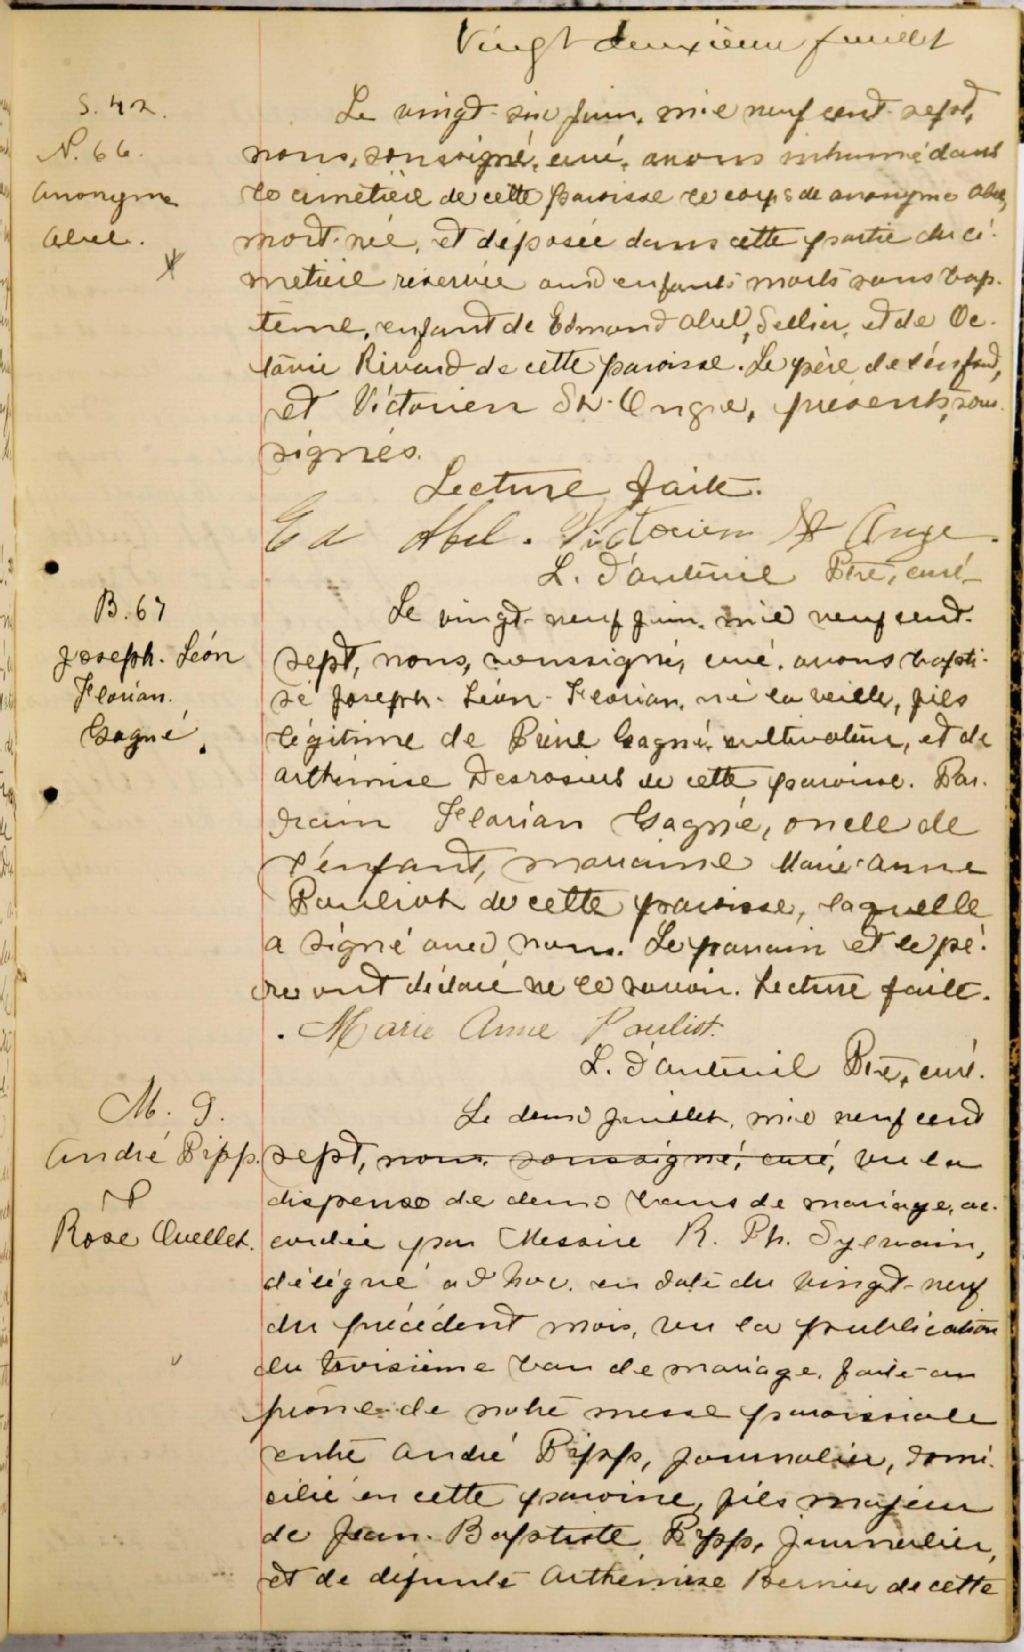 Vingt deuxième feuillet
S. 42.
N. 66.
Anonyme
Abel.
Le vingt-six juin, mil neuf cent-sept,
nous, soussigné, curé, avons inhumé dans
le cimetière de cette paroisse le corps de anonyme Abel,
mort-né, et déposée dans cette partie du ci-
metière réservée aux enfants morts sans bap-
tême, enfant de Edmond Abel, Sellier, et de Oc-
tavie Rivard de cette paroisse. Le père de l'enfant,
et Victorien St-Onge, présents, sous-
signés.
Lecture faite.
Ed Abel. Victorien St Onge.
L. D'auteuil Ptre, curé
B. 67
Joseph-Léon
Florian
Gagné.
Le vingt-neuf juin, mil neuf cent-
sept, nous, soussigné, curé, avons bapti-
sé Joseph-Léon-Florian, né la veille, fils
légitime de Pierre Gagné, cultivateur, et de
Arthémise Desrosiers de cette paroisse. Par-
rain Florian Gagné, oncle de
l'enfant, marraine Marie-Anne
Pouliot de cette paroisse, laquelle
a signé avec nous. Le parrain et le pè-
re ont déclaré ne le savoir. Lecture faite.
Marie Anne Pouliot.
L. D'auteuil Ptre, curé.
M. 9.
André Pipp.
et
Rose Ouellet.
Le deux juillet, mil neuf cent
sept, nous, soussigné, curé, vu la
dispense de deux bans de mariage, ac-
cordée par Messire R. Ph. Sylvain,
désigné ad hoc, en date du vingt-neuf
du précédent mois, vu la publication
du troisième ban de mariage, faite au
prône de notre messe paroissiale
entre André Pipp, journalier, domi-
cilié en cette paroisse, fils majeur
de Jean-Baptiste Pipp, journalier,
et de défunte Arthémise Bernier de cette